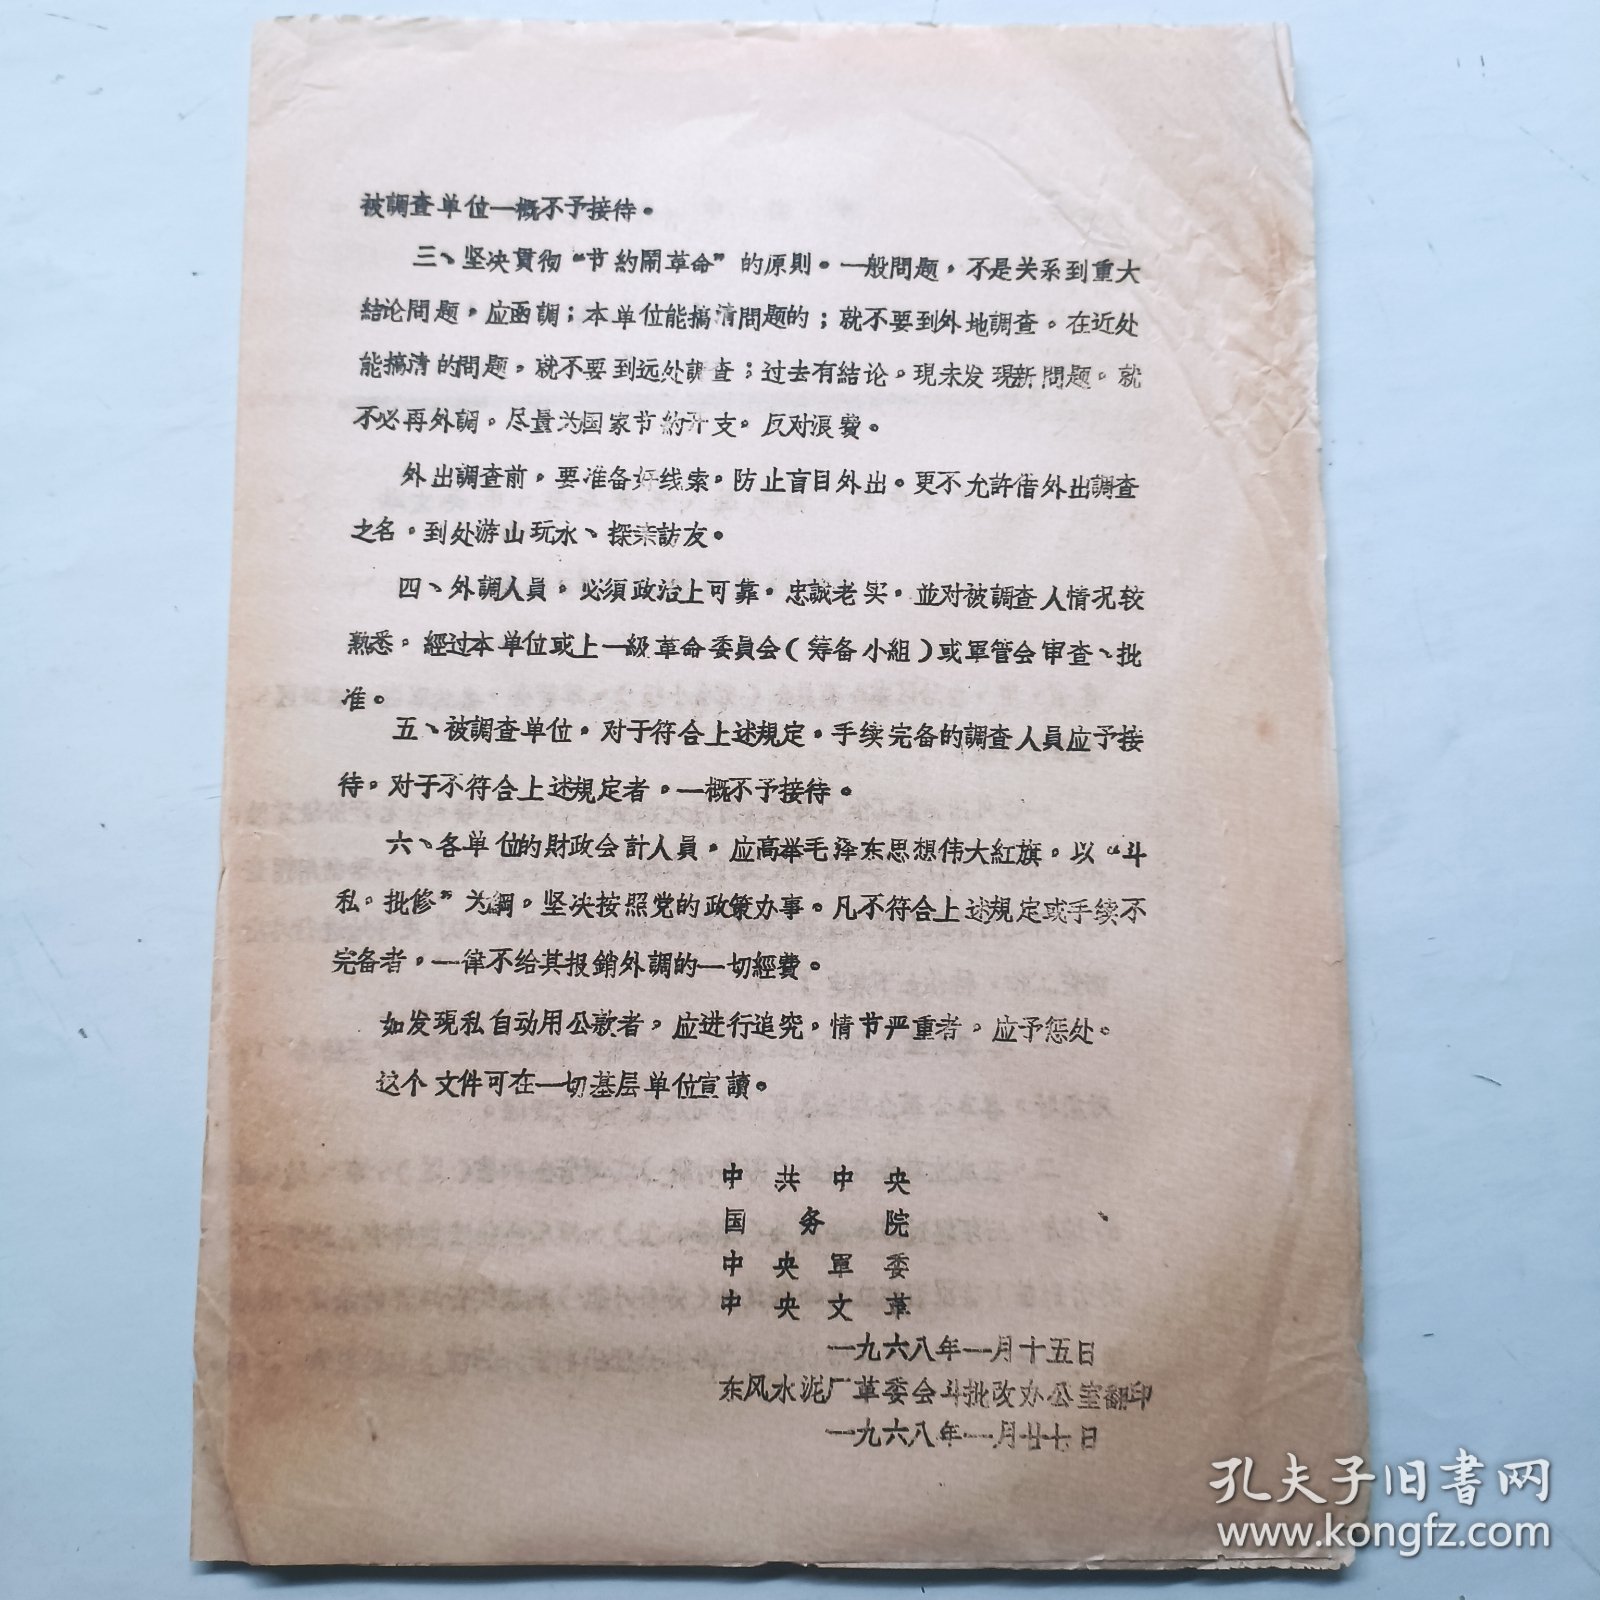 被調查单位一概不予接待。
三、坚决貫彻“节約鬧革命”的原則。一般問題，不是关系到重大
結论問題，应函調；本单位能搞清問題的；就不要到外地調查。在近处
能搞清的問題，就不要到远处調查；过去有結论，現未发現新問題，就
不必再外調，尽量为国家节約开支，反对浪費。
外出調查前，要准备好线索，防止盲目外出。更不允許借外出調查
之名，到处游山玩水、探亲訪友。
四、外調人員，必須政治上可靠，忠誠老实，並对被調查人情况较
熟悉，經过本单位或上一級革命委員会（筹备小組）或軍管会审查、批
准。
五、被調查单位，对于符合上述規定，手续完备的調查人員应予接
待，对于不符合上述規定者，一概不予接待。
六、各单位的財政会計人員，应高举毛泽东思想伟大紅旗，以“斗
私，批修”为綱，坚决按照党的政策办事。凡不符合上述規定或手续不
完备者，一律不给其报銷外調的一切經費。
如发現私自动用公款者，应进行追究，情节严重者，应予惩处。
这个文件可在一切基层单位宣讀。
中共中央
国务院
中央軍委
中央文革
一九六八年一月十五日
东风水泥厂革委会斗批改办公室翻印
一九六八年一月廿七日
孔夫子旧书网
www.kongfz.com